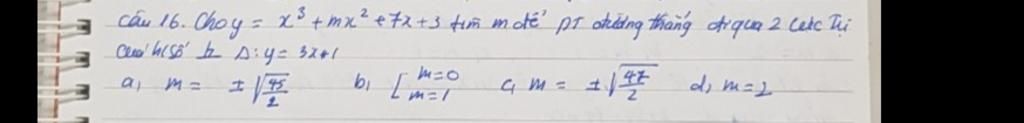 Câu 16. Cho y = x³ + mx² + 7x + 3 tìm m để PT đường thẳng đi qua 2 cực trị
của h/số ⊥ Δ: y = 3x+1
a, m = ±√(45/2) b, [m=0 m=1 c, m = ±√(47/2) d, m=2